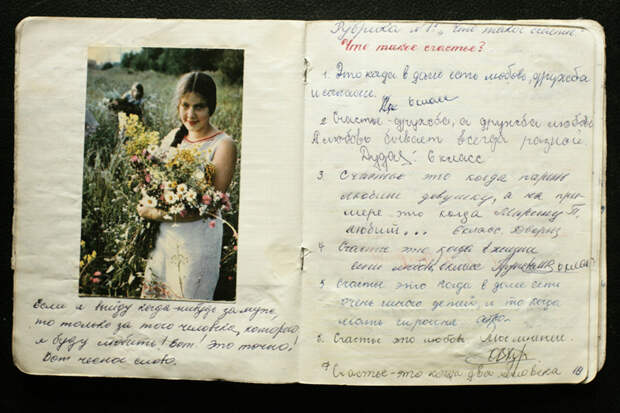 Если я выйду когда-нибудь замуж,
то только за того человека, которого
я буду любить! Вот! Это точно!
Вот честное слово.
Рубрика №1 „Что такое счастье"
Что такое счастье?
1. Это когда в доме есть любовь, дружба
и
6 класс
2 Счастье-дружба, а дружба любовь
А любовь бывает всегда разной
6 класс
3 Счастье это когда парень
любит девушку, а на при-
мере это когда П.
любит... 6 класс
4 Счастье это когда в жизни
есть 6 класс
5 счастье это когда в доме есть
очень много детей, и то когда
6. Счастье это любовь
7 Счастье-это когда два человека
18